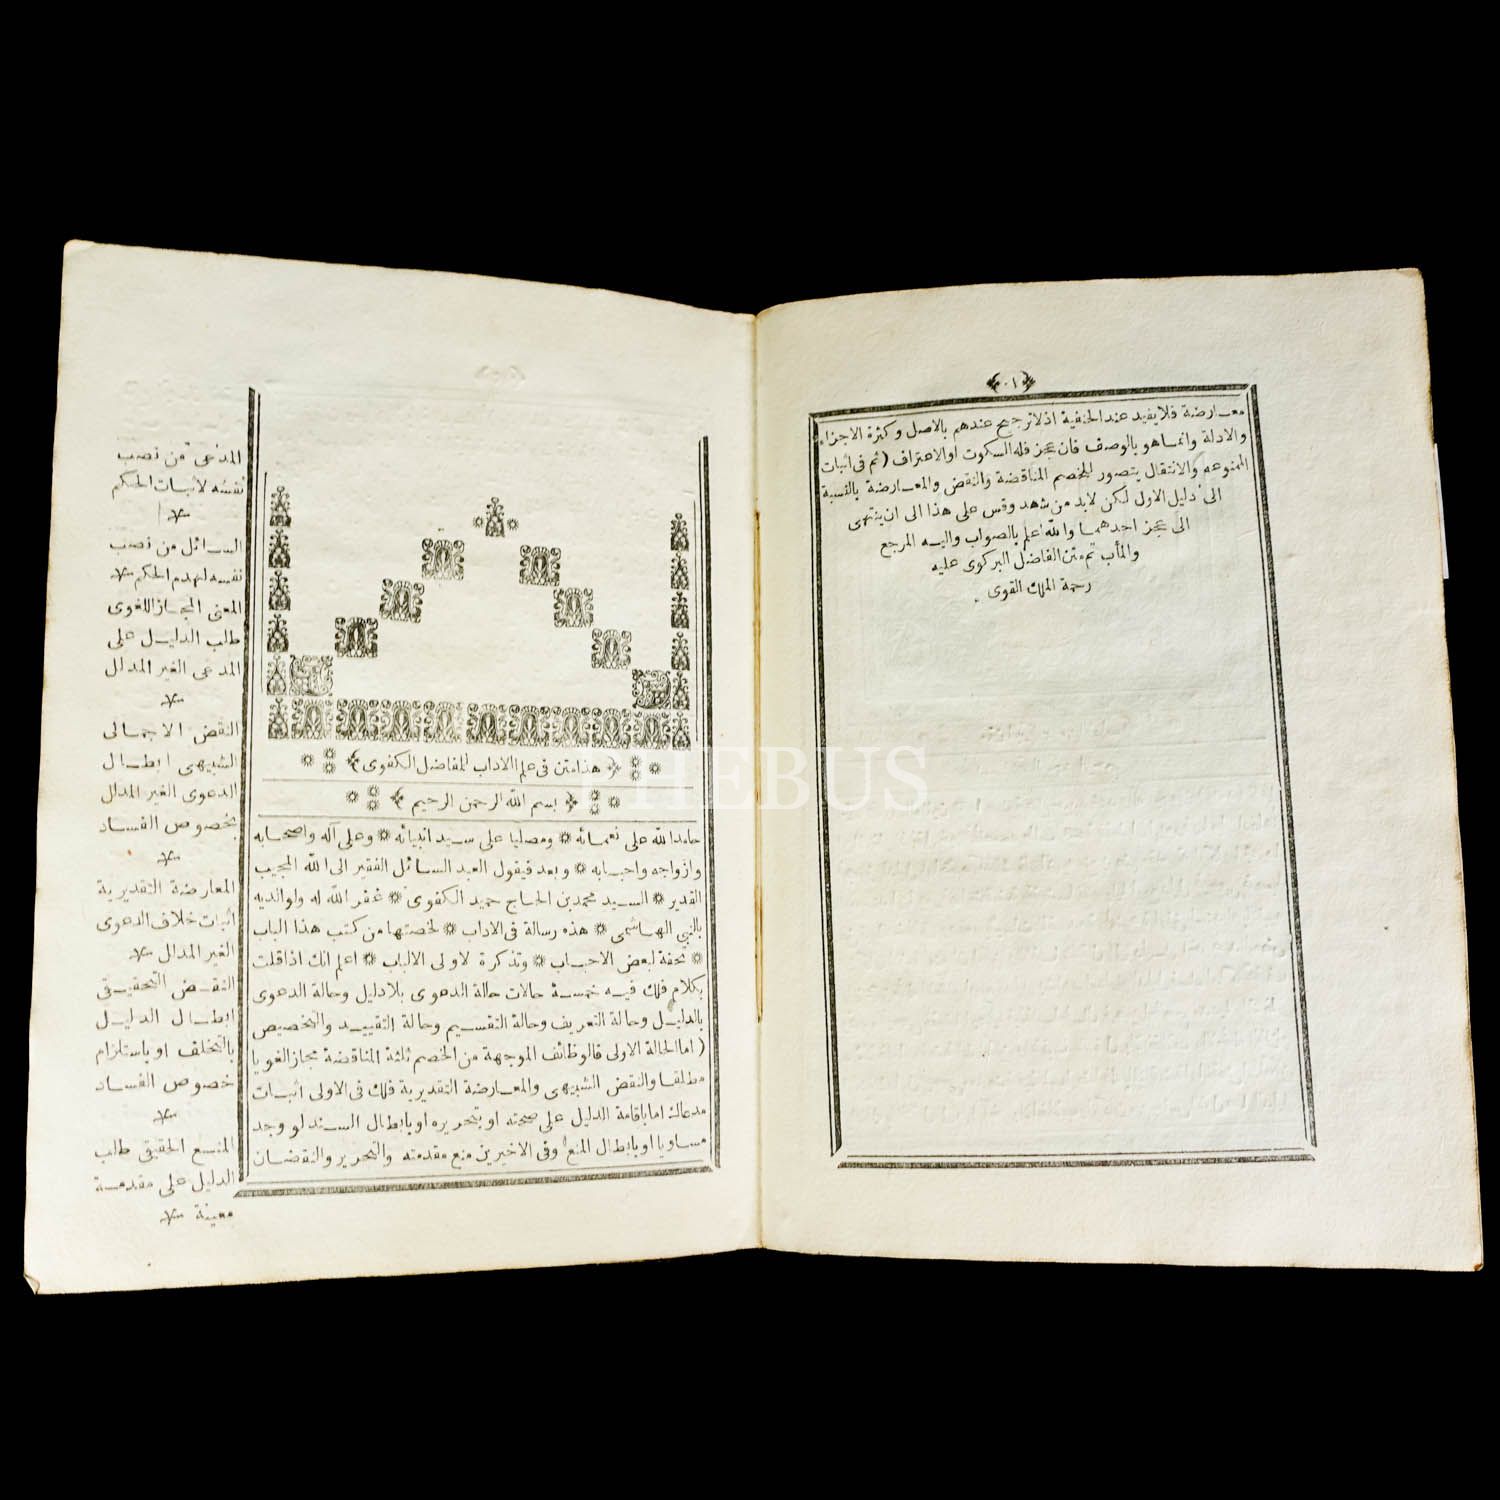 ١٠
معارضة فلا يفيد عند الحنفية اذ لا ترجيح عندهم بالاصل وكثرة الاجزاء
والادلة وانما هو بالوصف فان عجز فله السكوت او الاعتراف (ثم فى اثبات
الممنوعه والانتقال يتصور للخصم المناقضة والنقض والمعارضة بالنسبة
الى دليل الاول لكن لابد من شهد وقس على هذا الى ان ينتهى
الى عجز احدهما والله اعلم بالصواب واليه المرجع
والمأب تم متن الفاضل البركوى عليه
رحمة الملك القوى
هذا متن فى علم الاداب للفاضل الكفوى
بسم الله الرحمن الرحيم
حامدا لله على نعمائه ومصليا على سيد انبيائه وعلى آله واصحابه
وازواجه واحبابه وبعد فيقول العبد السائل الفقير الى الله المجيب
القدير السيد محمد بن الحاج حميد الكفوى غفر الله له ولوالديه
بالنبى الهاشمى هذه رسالة فى الاداب لخصتها من كتب هذا الباب
تحفة لبعض الاحباب وتذكرة لاولى الالباب اعلم انك اذا قلت
بكلام فلك فيه خمسة حالات حالة الدعوى بلا دليل وحالة الدعوى
بالدليل وحالة التعريف وحالة التقسيم وحالة التقييد والتخصيص
(اما الحالة الاولى فالوظائف الموجهة من الخصم ثلثة المناقضة مجازا لغويا
مطلقا والنقض الشبيهى والمعارضة التقديرية فلك فى الاولى اثبات
مدعاك اما باقامة الدليل على صحته او بتحريره او بابطال السند لو وجد
مساويا او بابطال المنع وفى الاخيرين منع مقدمته والتحرير والنقضان
المدعى من نصب
نفسه لاثبات الحكم
السائل من نصب
نفسه لهدم الحكم
المعنى المجاز اللغوى
طلب الدليل على
المدعى الغير المدلل
النقض الاجمالى
الشبيهى ابطال
الدعوى الغير المدلل
بخصوص الفساد
المعارضة التقديرية
اثبات خلاف الدعوى
الغير المدلل
النقض التحقيقى
ابطال الدليل
بالتخلف او باستلزام
خصوص الفساد
المنع الحقيقى طلب
الدليل على مقدمة
معينة
PHEBUS